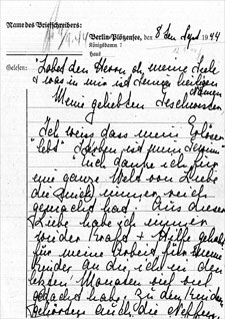 Name des Briefschreibers:
Berlin-Plötzensee, den 8 ten Sept 1944
Königsdamm 7
Haus
Gelesen:
"Lobet den Herrn oh meine Seele
& was in mir ist seinen heiligen
Namen
Meine geliebten Geschwister
Ich weiss dass mein Erlöser
lebt" "Sterben ist mein Gewinn"
Euch danke ich für
eine ganze Welt von Liebe
die mich immer reich
gemacht hat. Aus dieser
Liebe habe ich immer
wieder Kraft & Hilfe gehabt
für meine Arbeit, für meine
Kinder an die ich in den
letzten Monaten viel viel
gedacht habe, zu den Kindern
gehören auch die Neffen